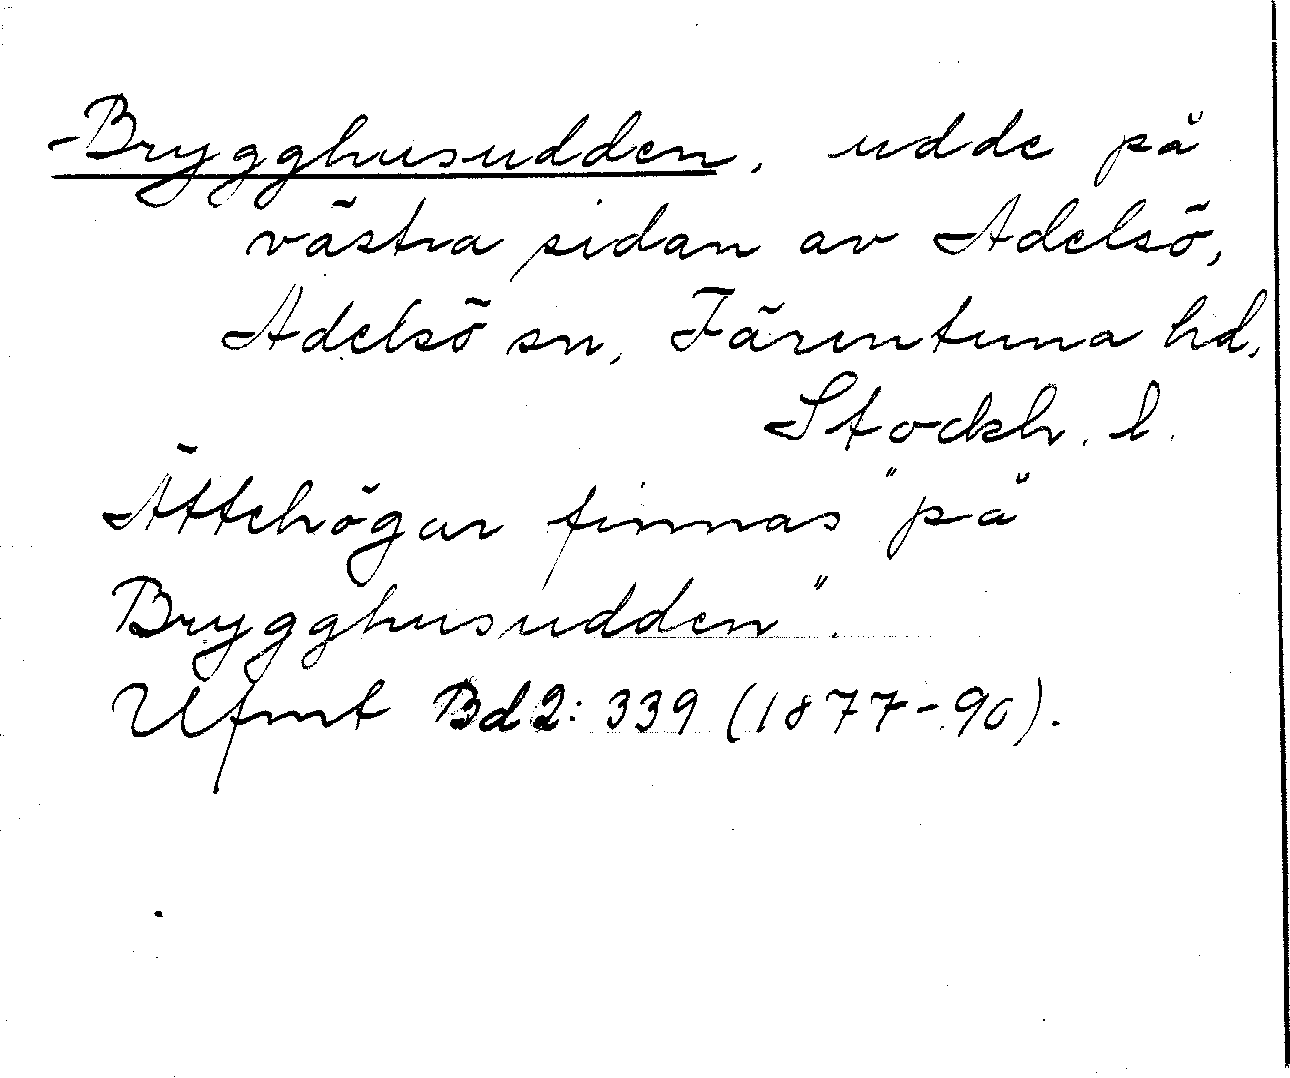 -Brygghusudden, udde på
västra sidan av Adelsö,
Adelsö sn, Färentuna hd,
Stockh. l.
Ättehögar finnas "på
Brygghusudden".
Ufmt Bd 2: 339 (1877-90).